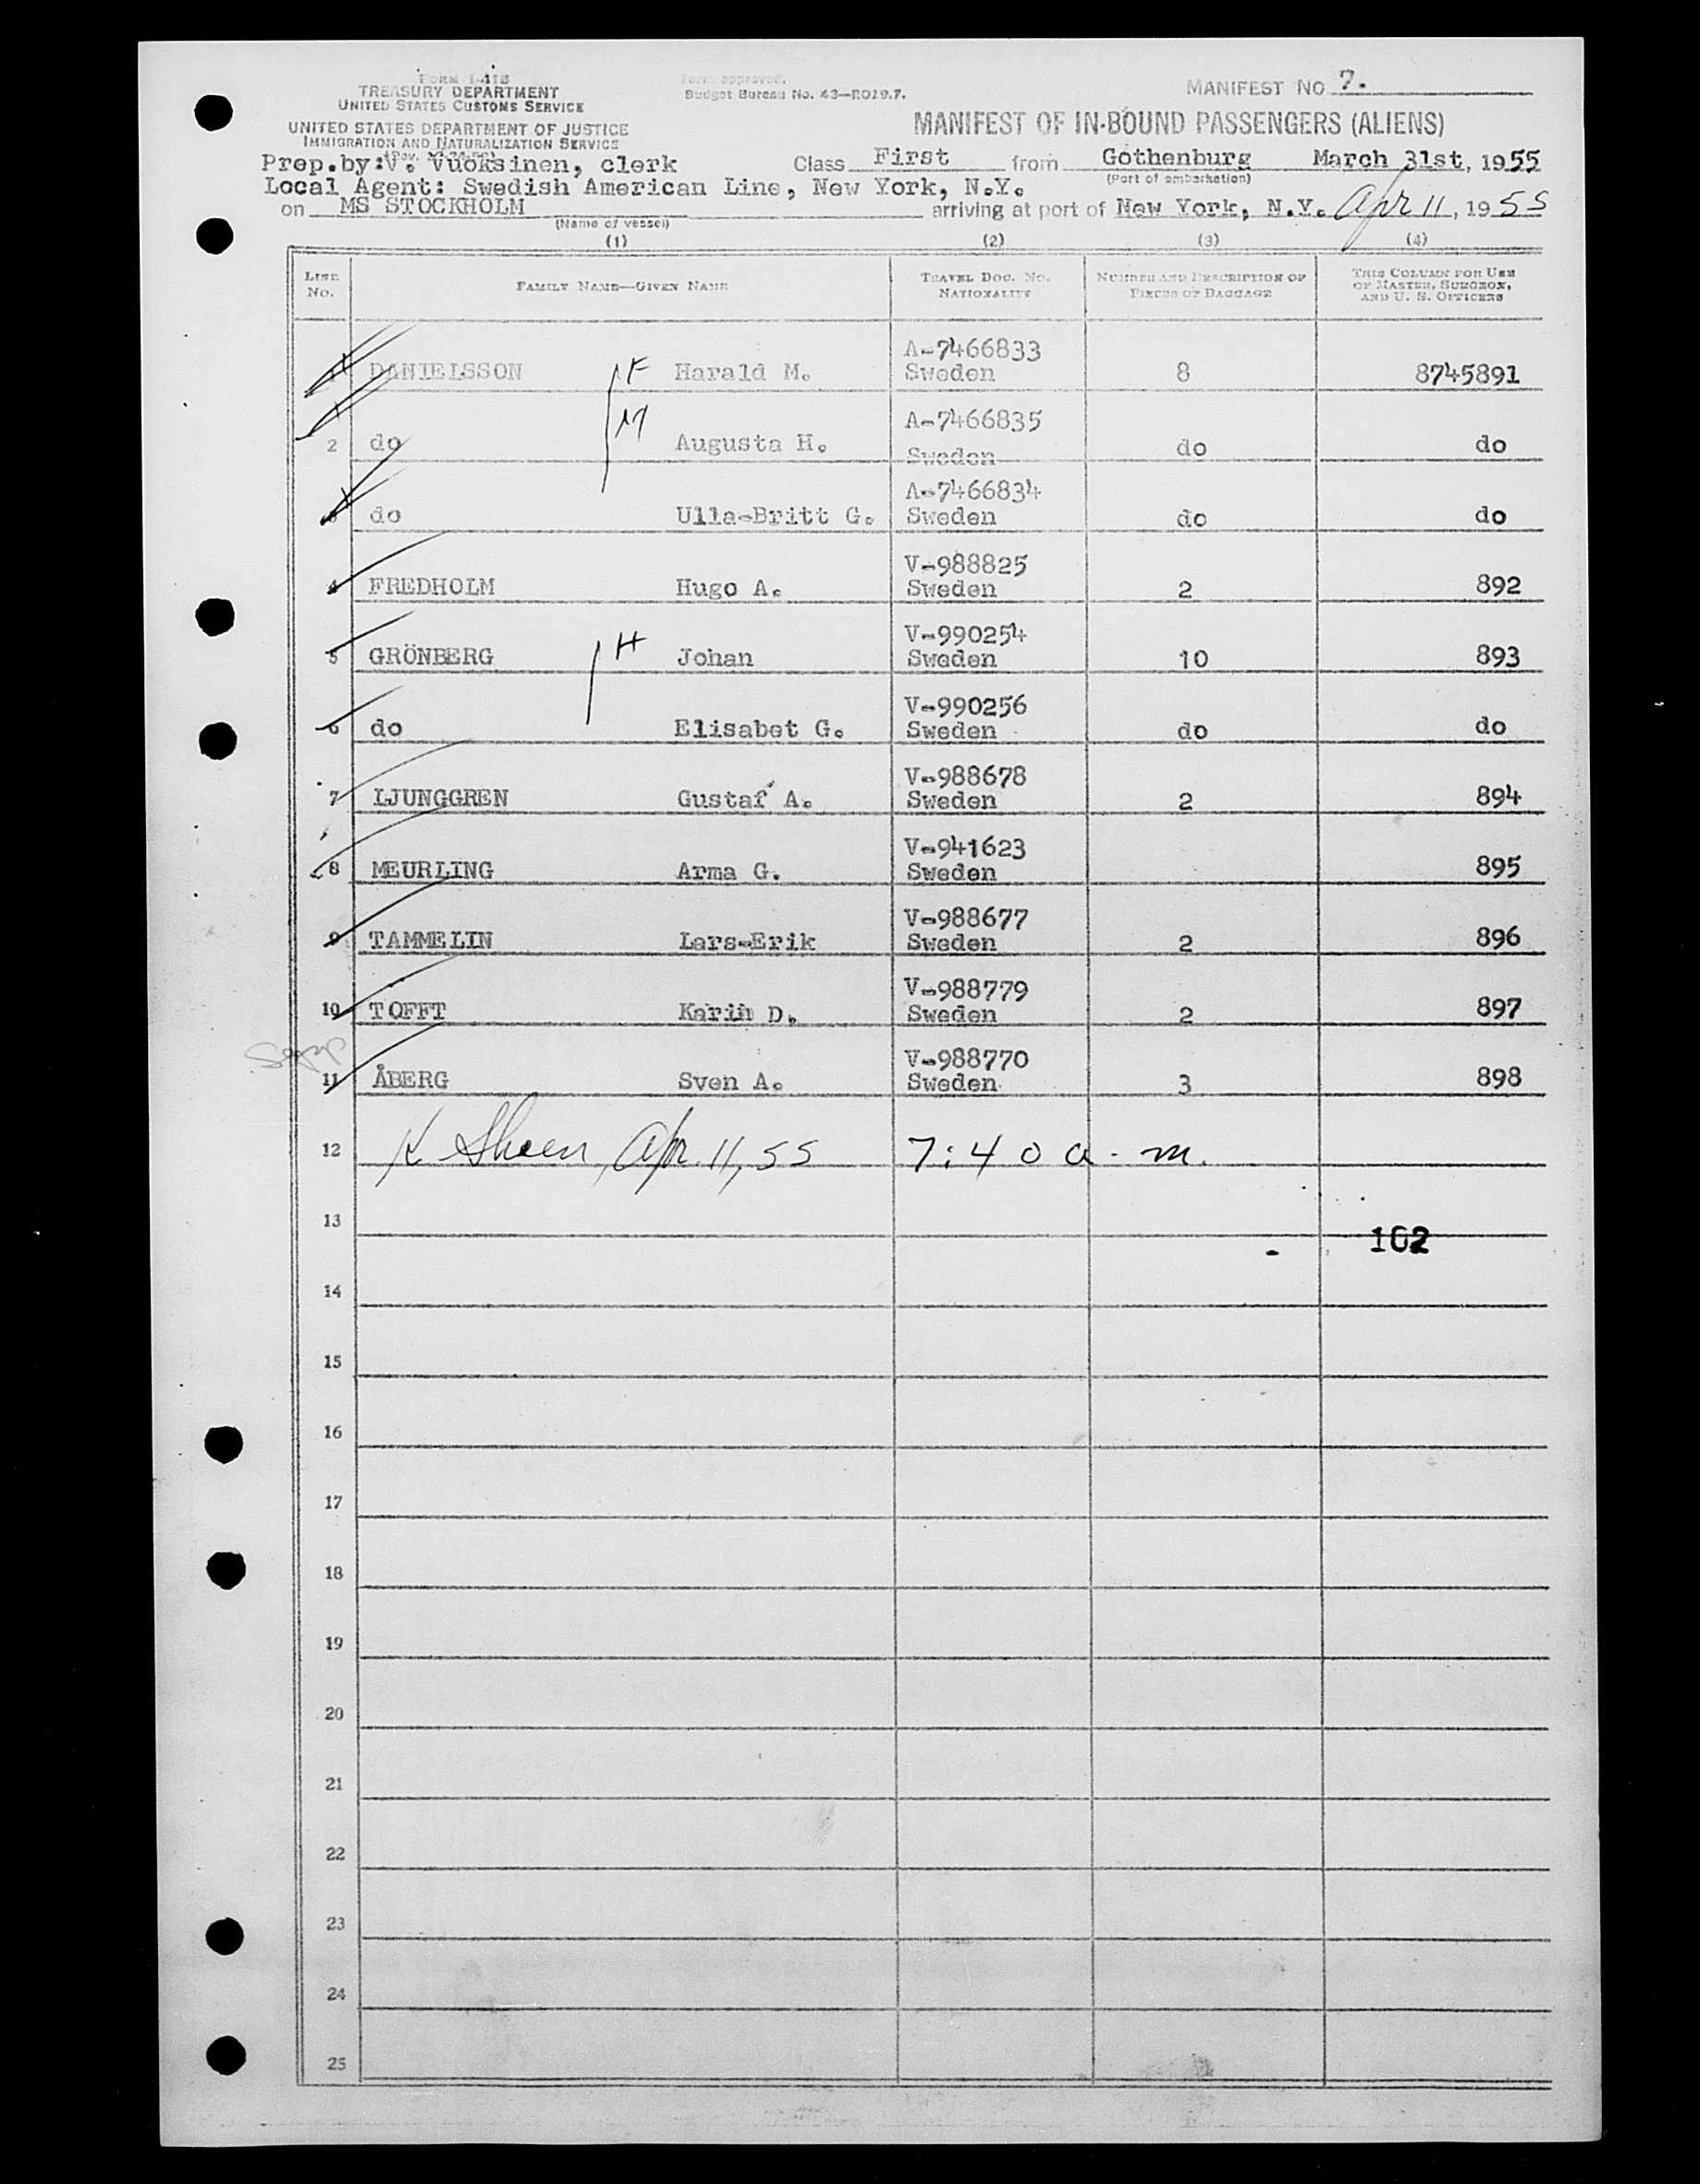 FORM I-418
TREASURY DEPARTMENT
UNITED STATES CUSTOMS SERVICE
UNITED STATES DEPARTMENT OF JUSTICE
IMMIGRATION AND NATURALIZATION SERVICE
Form approved.
Budget Bureau No. 43—R019.7.
MANIFEST NO 7.
MANIFEST OF IN-BOUND PASSENGERS (ALIENS)
Prep.by:V. Vuoksinen, clerk
Class First from Gothenburg March 31st, 1955
(Port of embarkation)
Local Agent: Swedish American Line, New York, N.Y.
on MS STOCKHOLM arriving at port of New York, N.Y. Apr 11, 1955
(Name of vessel)
(1) (2) (3) (4)
LINE NO. FAMILY NAME—GIVEN NAME TRAVEL DOC. NO. NATIONALITY NUMBER AND DESCRIPTION OF PIECES OF BAGGAGE THIS COLUMN FOR USE OF MASTER, SURGEON, AND U. S. OFFICERS
A-7466833
1 DANIELSSON F Harald M. Sweden 8 8745891
A-7466835
2 do M Augusta H. Sweden do do
A-7466834
3 do Ulla-Britt G. Sweden do do
V-988825
4 FREDHOLM Hugo A. Sweden 2 892
V-990254
5 GRÖNBERG H Johan Sweden 10 893
V-990256
6 do Elisabet G. Sweden do do
V-988678
7 LJUNGGREN Gustaf A. Sweden 2 894
V-941623
8 MEURLING Arma G. Sweden 895
V-988677
9 TAMMELIN Lars-Erik Sweden 2 896
V-988779
10 TOFFT Karin D. Sweden 2 897
V-988770
11 ÅBERG Sven A. Sweden 3 898
12 K Sheen, Apr. 11, 55 7:40 a.m.
13
102
14
15
16
17
18
19
20
21
22
23
24
25